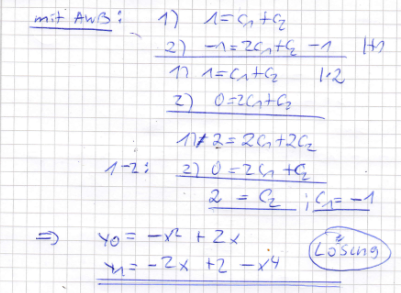 mit AWB: 1) 1 = c₁ + c₂
2) -1 = 2c₁ + c₂ - 1 | +1
1) 1 = c₁ + c₂ | · 2
2) 0 = 2c₁ + c₂
1) 2 = 2c₁ + 2c₂
1-2: 2) 0 = 2c₁ + c₂
2 = c₂ ; c₁ = -1
⇒ y₀ = -x² + 2x
y₁ = -2x + 2 - x⁴
Lösung